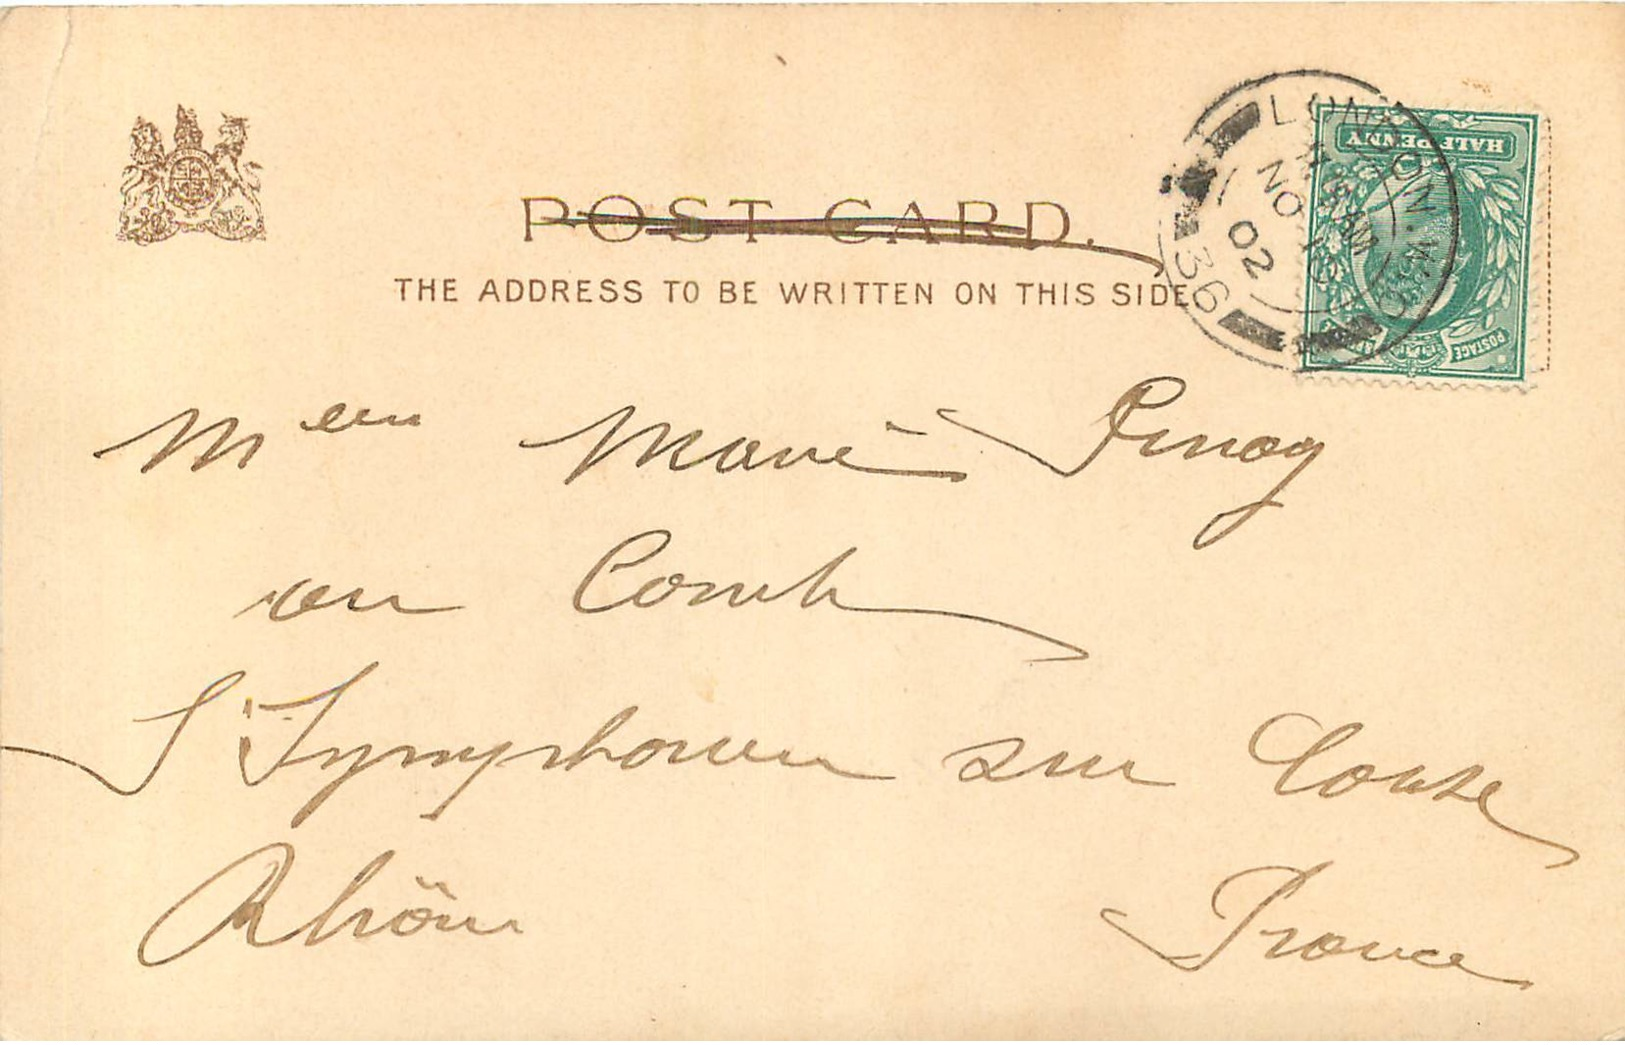 POST CARD.
THE ADDRESS TO BE WRITTEN ON THIS SIDE
LONDON. W.
NO
02
36
HALFPENNY
POSTAGE
Marie Pinay
au
St Symphorien sur Coise
Rhône France